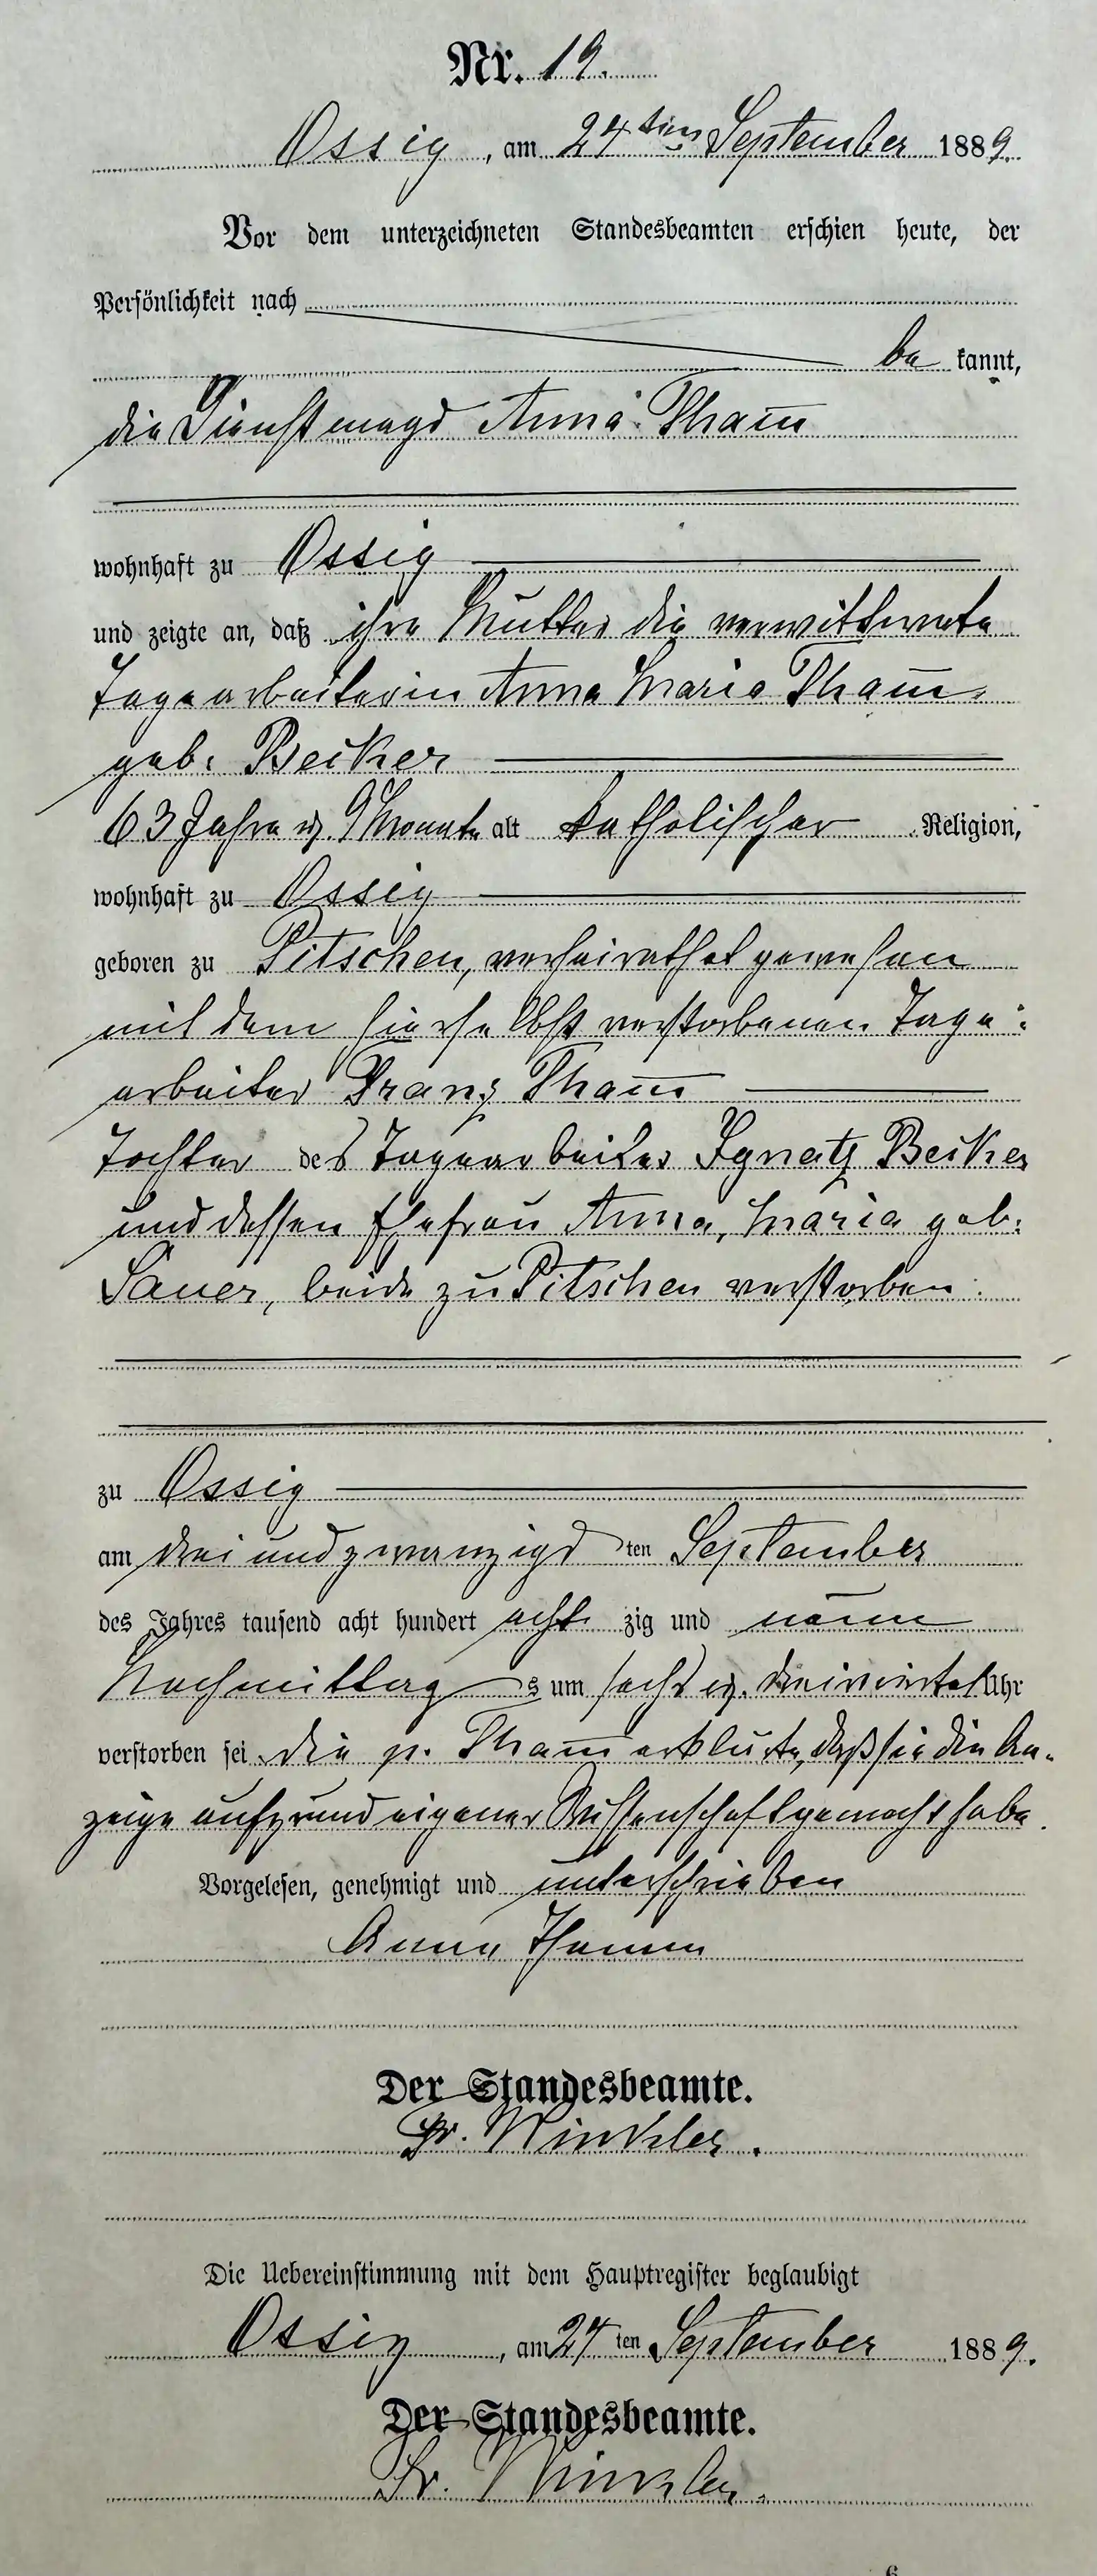 Nr. 19.
Ossig, am 24ten September 1889.
Vor dem unterzeichneten Standesbeamten erschien heute, der
Persönlichkeit nach
be kannt,
die Dienstmagd Anna Tham̅
wohnhaft zu Ossig
und zeigte an, daß ihre Mutter die verwittwete
Tagearbeiterin Anna Maria Tham̅
geb. Beiker
63 Jahre u. 9 Monate alt katholischer Religion,
wohnhaft zu Ossig
geboren zu Pitschen, verheirathet gewesen
mit dem hierselbst verstorbenen Tage:
arbeiter Franz Tham̅
Tochter des Tagearbeiter Ignatz Beiker
und dessen Ehefrau Anna, Maria geb:
Sauer, beide zu Pitschen verstorben.
zu Ossig
am drei und zwanzigs ten September
des Jahres tausend acht hundert acht zig und neun
Nachmittag s um sechs u. dreiviertel Uhr
verstorben sei. Die p. Tham̅ erklärte, daß sie die An-
zeige aufgrund eigener Wissenschaft gemacht habe.
Vorgelesen, genehmigt und unterschrieben
Anna Thamm
Der Standesbeamte.
Fr. Winkler.
Die Uebereinstimmung mit dem Hauptregister beglaubigt
Ossig, am 24 ten September 1889.
Der Standesbeamte.
Fr. Winkler.
6